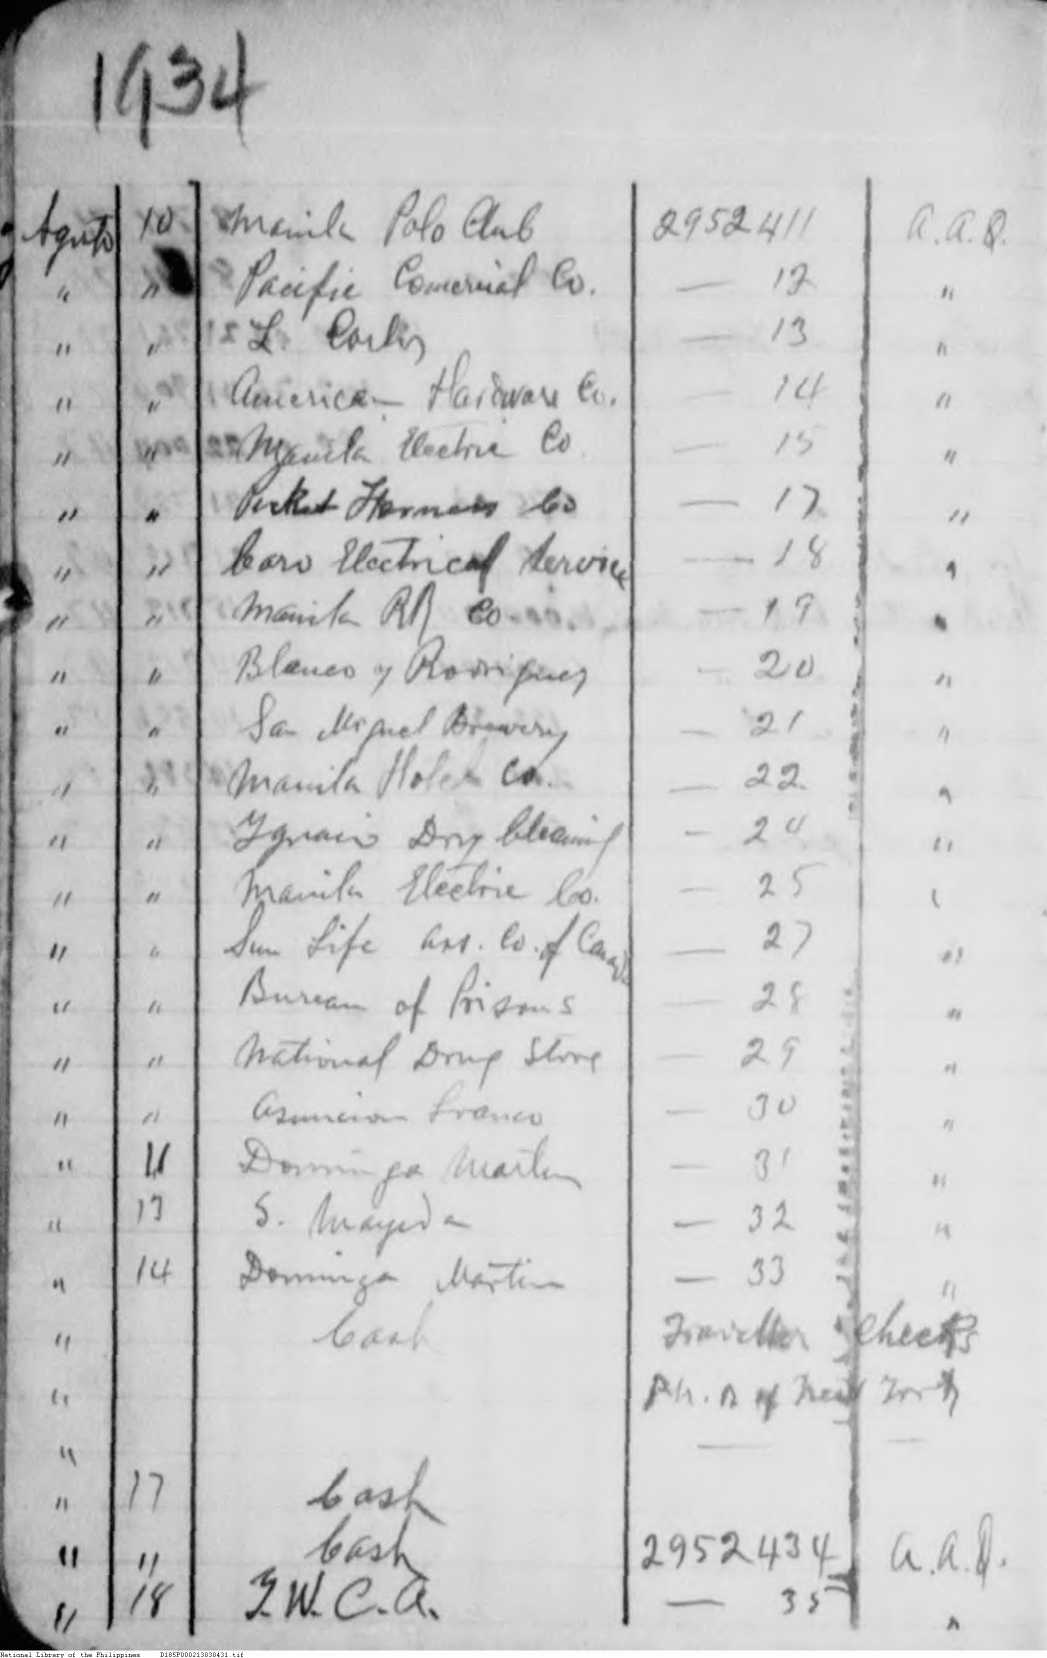 1934
Agosto 10 Manila Polo Club 2952411 A.A.Q.
" " Pacific Comercial Co. — 12 "
" " L. — 13 "
" " American Hardware Co. — 14 "
" " Manila Electric Co — 15 "
" " Co — 17 "
" " Caro Electrical Service — 18 "
" " Manila RR Co. — 19 "
" " Blanco y Rodriguez — 20 "
" " San Miguel Brewery — 21 "
" " Manila Hotel Co. — 22 "
" " Dry Cleaning — 24 "
" " Manila Electric Co. — 25 "
" " Sun Life Ass. Co. of Canada — 27 "
" " Bureau of Prisons — 28 "
" " National Drug Store — 29 "
" " Asuncion Franco — 30 "
" 11 Dominga Martin — 31 "
" 13 S. Mayeda — 32 "
" 14 Dominga Martin — 33 "
" Cash Traveller Checks
" of New York
" — —
" 17 Cash
" " Cash 2952434 A.A.Q.
" 18 Y.W.C.A. — 35 "
National Library of the Philippines D185P000213830431.tif